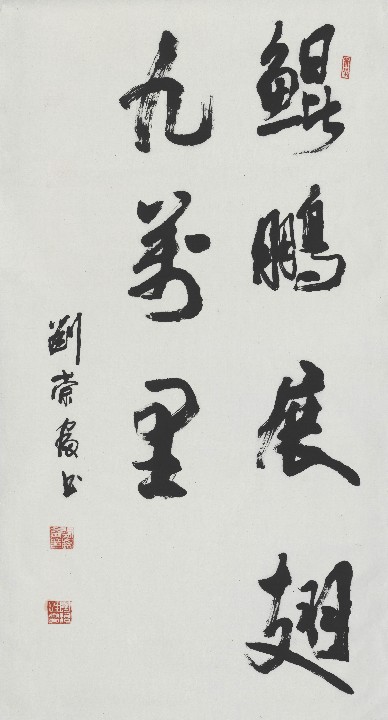 鲲鹏展翅
九万里
刘荣厚书